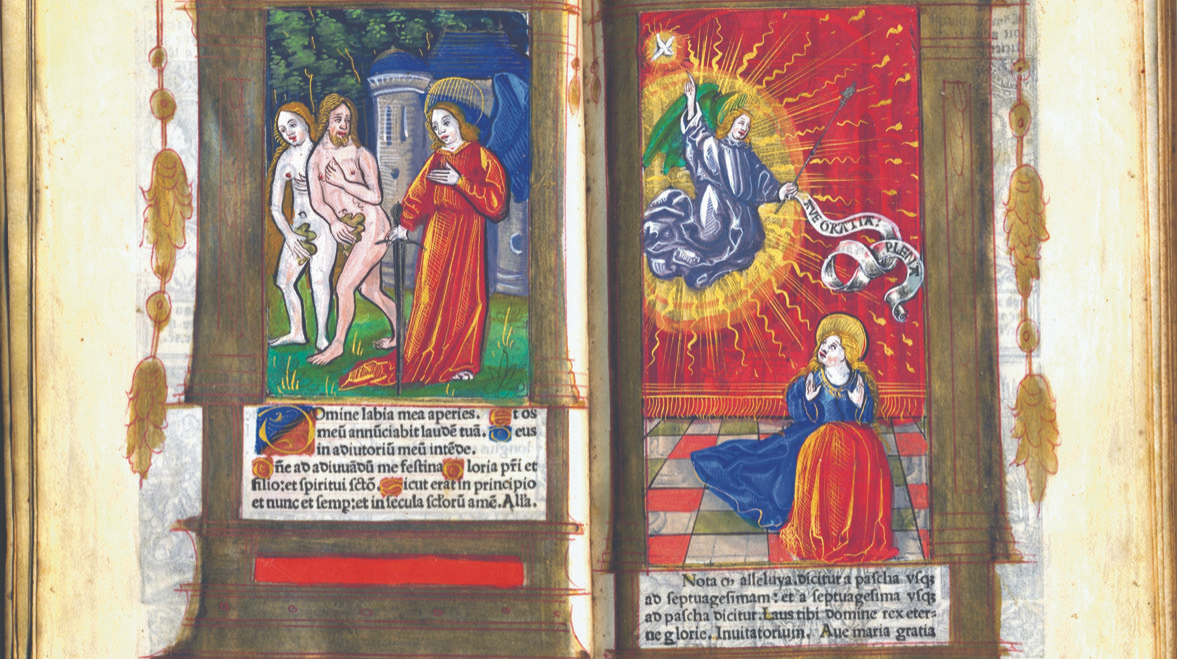 Domine labia mea aperies. Et os
meū annūciabit laudē tuā. Deus
in adiutoriū meū intēde.
Dñe ad adiuuādū me festina Gloria pr̄i et
filio: et spiritui sctō. Sicut erat in principio
et nunc et semp: et in secula sclorū amē. Alla.
AVE GRATIA:
PLENA
Nota ꝙ alleluya. dicitur a pascha vsqꝫ
ad septuagesimam: et a septuagesima vsqꝫ
ad pascha dicitur. Laus tibi domine rex eter=
ne glorie. Inuitatorium. Aue maria gratia